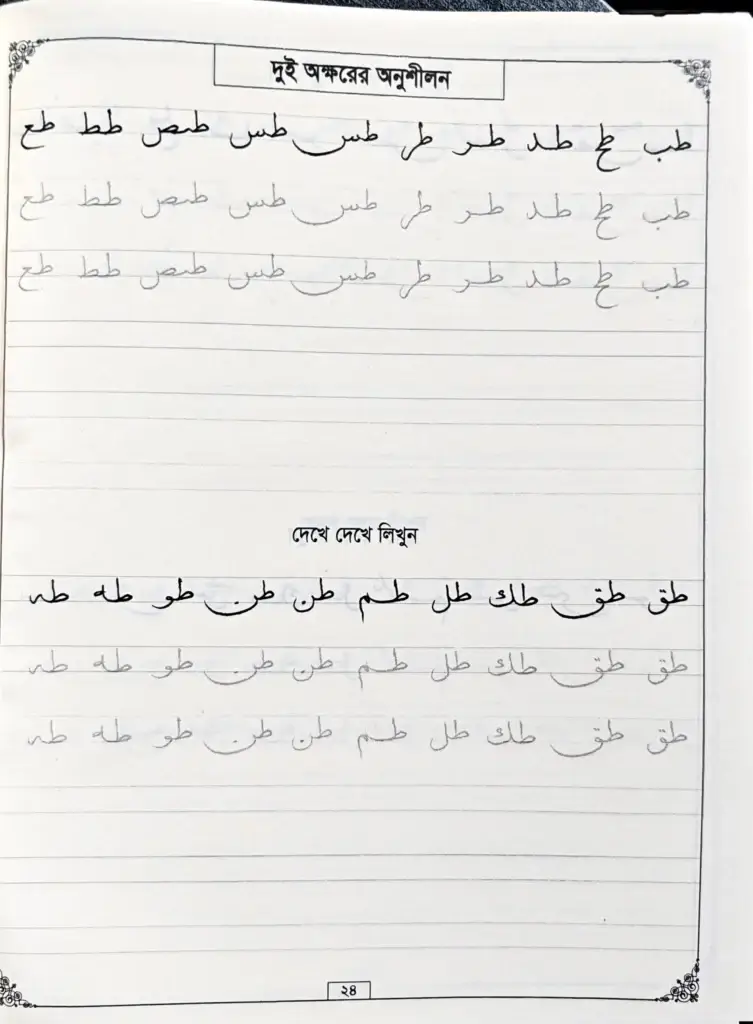 দুই অক্ষরের অনুশীলন
طب طح طد طر طر طس طس طص طط طع
طب طح طد طر طر طس طس طص طط طع
طب طح طد طر طر طس طس طص طط طع
দেখে দেখে লিখুন
طق طق طك طل طم طن طن طو طه طه
طق طق طك طل طم طن طن طو طه طه
طق طق طك طل طم طن طن طو طه طه
২৪